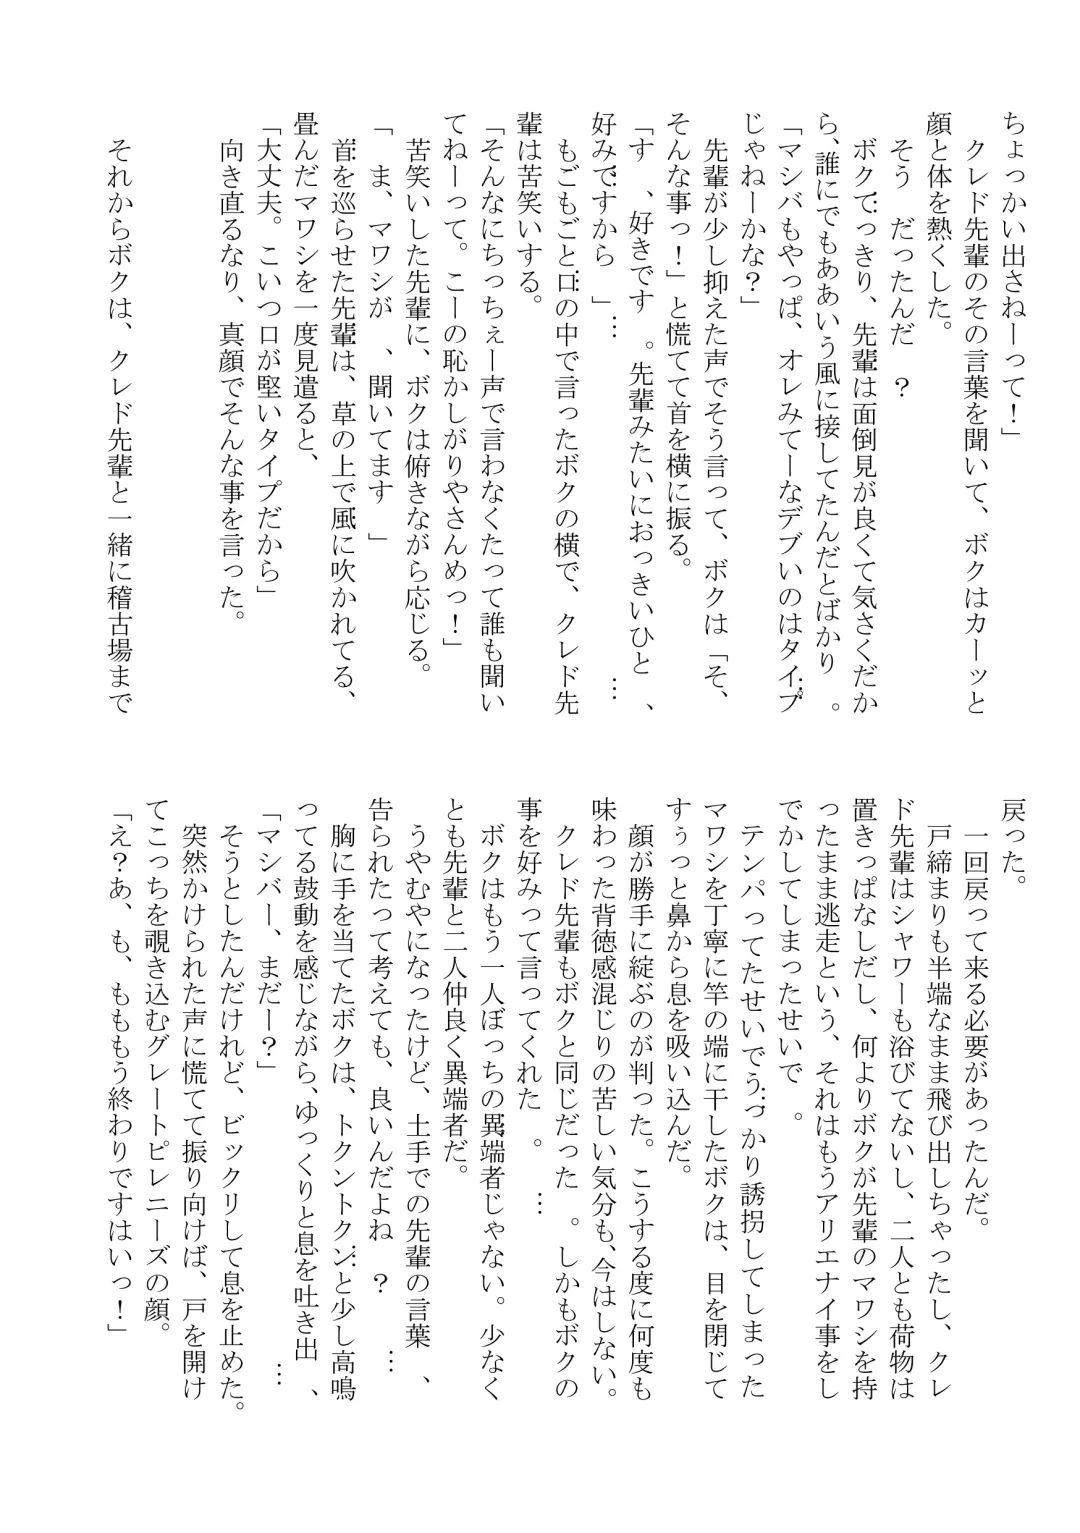 ちょっかい出さねーって！」
　クレド先輩のその言葉を聞いて、ボクはカーッと
顔と体を熱くした。
　そう　だったんだ　？
　ボクてっきり、先輩は面倒見が良くて気さくだか
ら、誰にでもああいう風に接してたんだとばかり　。
「マシバもやっぱ、オレみてーなデブいのはタイプ
じゃねーかな？」
　先輩が少し抑えた声でそう言って、ボクは「そ、
そんな事っ！」と慌てて首を横に振る。
「す　、好きです　。先輩みたいにおっきいひと　、
好みですから　」
　もごもごと口の中で言ったボクの横で、クレド先
輩は苦笑いする。
「そんなにちっちぇー声で言わなくたって誰も聞い
てねーって。こーの恥かしがりやさんめっ！」
　苦笑いした先輩に、ボクは俯きながら応じる。
「　ま、マワシが　、聞いてます　」
　首を巡らせた先輩は、草の上で風に吹かれてる、
畳んだマワシを一度見遣ると、
「大丈夫。こいつ口が堅いタイプだから」
　向き直るなり、真顔でそんな事を言った。
　それからボクは、クレド先輩と一緒に稽古場まで
戻った。
　一回戻って来る必要があったんだ。
　戸締まりも半端なまま飛び出しちゃったし、クレ
ド先輩はシャワーも浴びてないし、二人とも荷物は
置きっぱなしだし、何よりボクが先輩のマワシを持
ったまま逃走という、それはもうアリエナイ事をし
でかしてしまったせいで　。
　テンパってたせいでうっかり誘拐してしまった
マワシを丁寧に竿の端に干したボクは、目を閉じて
すぅっと鼻から息を吸い込んだ。
　顔が勝手に綻ぶのが判った。こうする度に何度も
味わった背徳感混じりの苦しい気分も、今はしない。
　クレド先輩もボクと同じだった　。しかもボクの
事を好みって言ってくれた　。…
　ボクはもう一人ぼっちの異端者じゃない。少なく
とも先輩と二人仲良く異端者だ。
　うやむやになったけど、土手での先輩の言葉　、
告られたって考えても、良いんだよね　？　…
　胸に手を当てたボクは、トクントクンと少し高鳴
ってる鼓動を感じながら、ゆっくりと息を吐き出　、
「マシバー、まだー？」　…
　そうとしたんだけれど、ビックリして息を止めた。
　突然かけられた声に慌てて振り向けば、戸を開け
てこっちを覗き込むグレートピレニーズの顔。
「え？あ、も、ももう終わりですはいっ！」